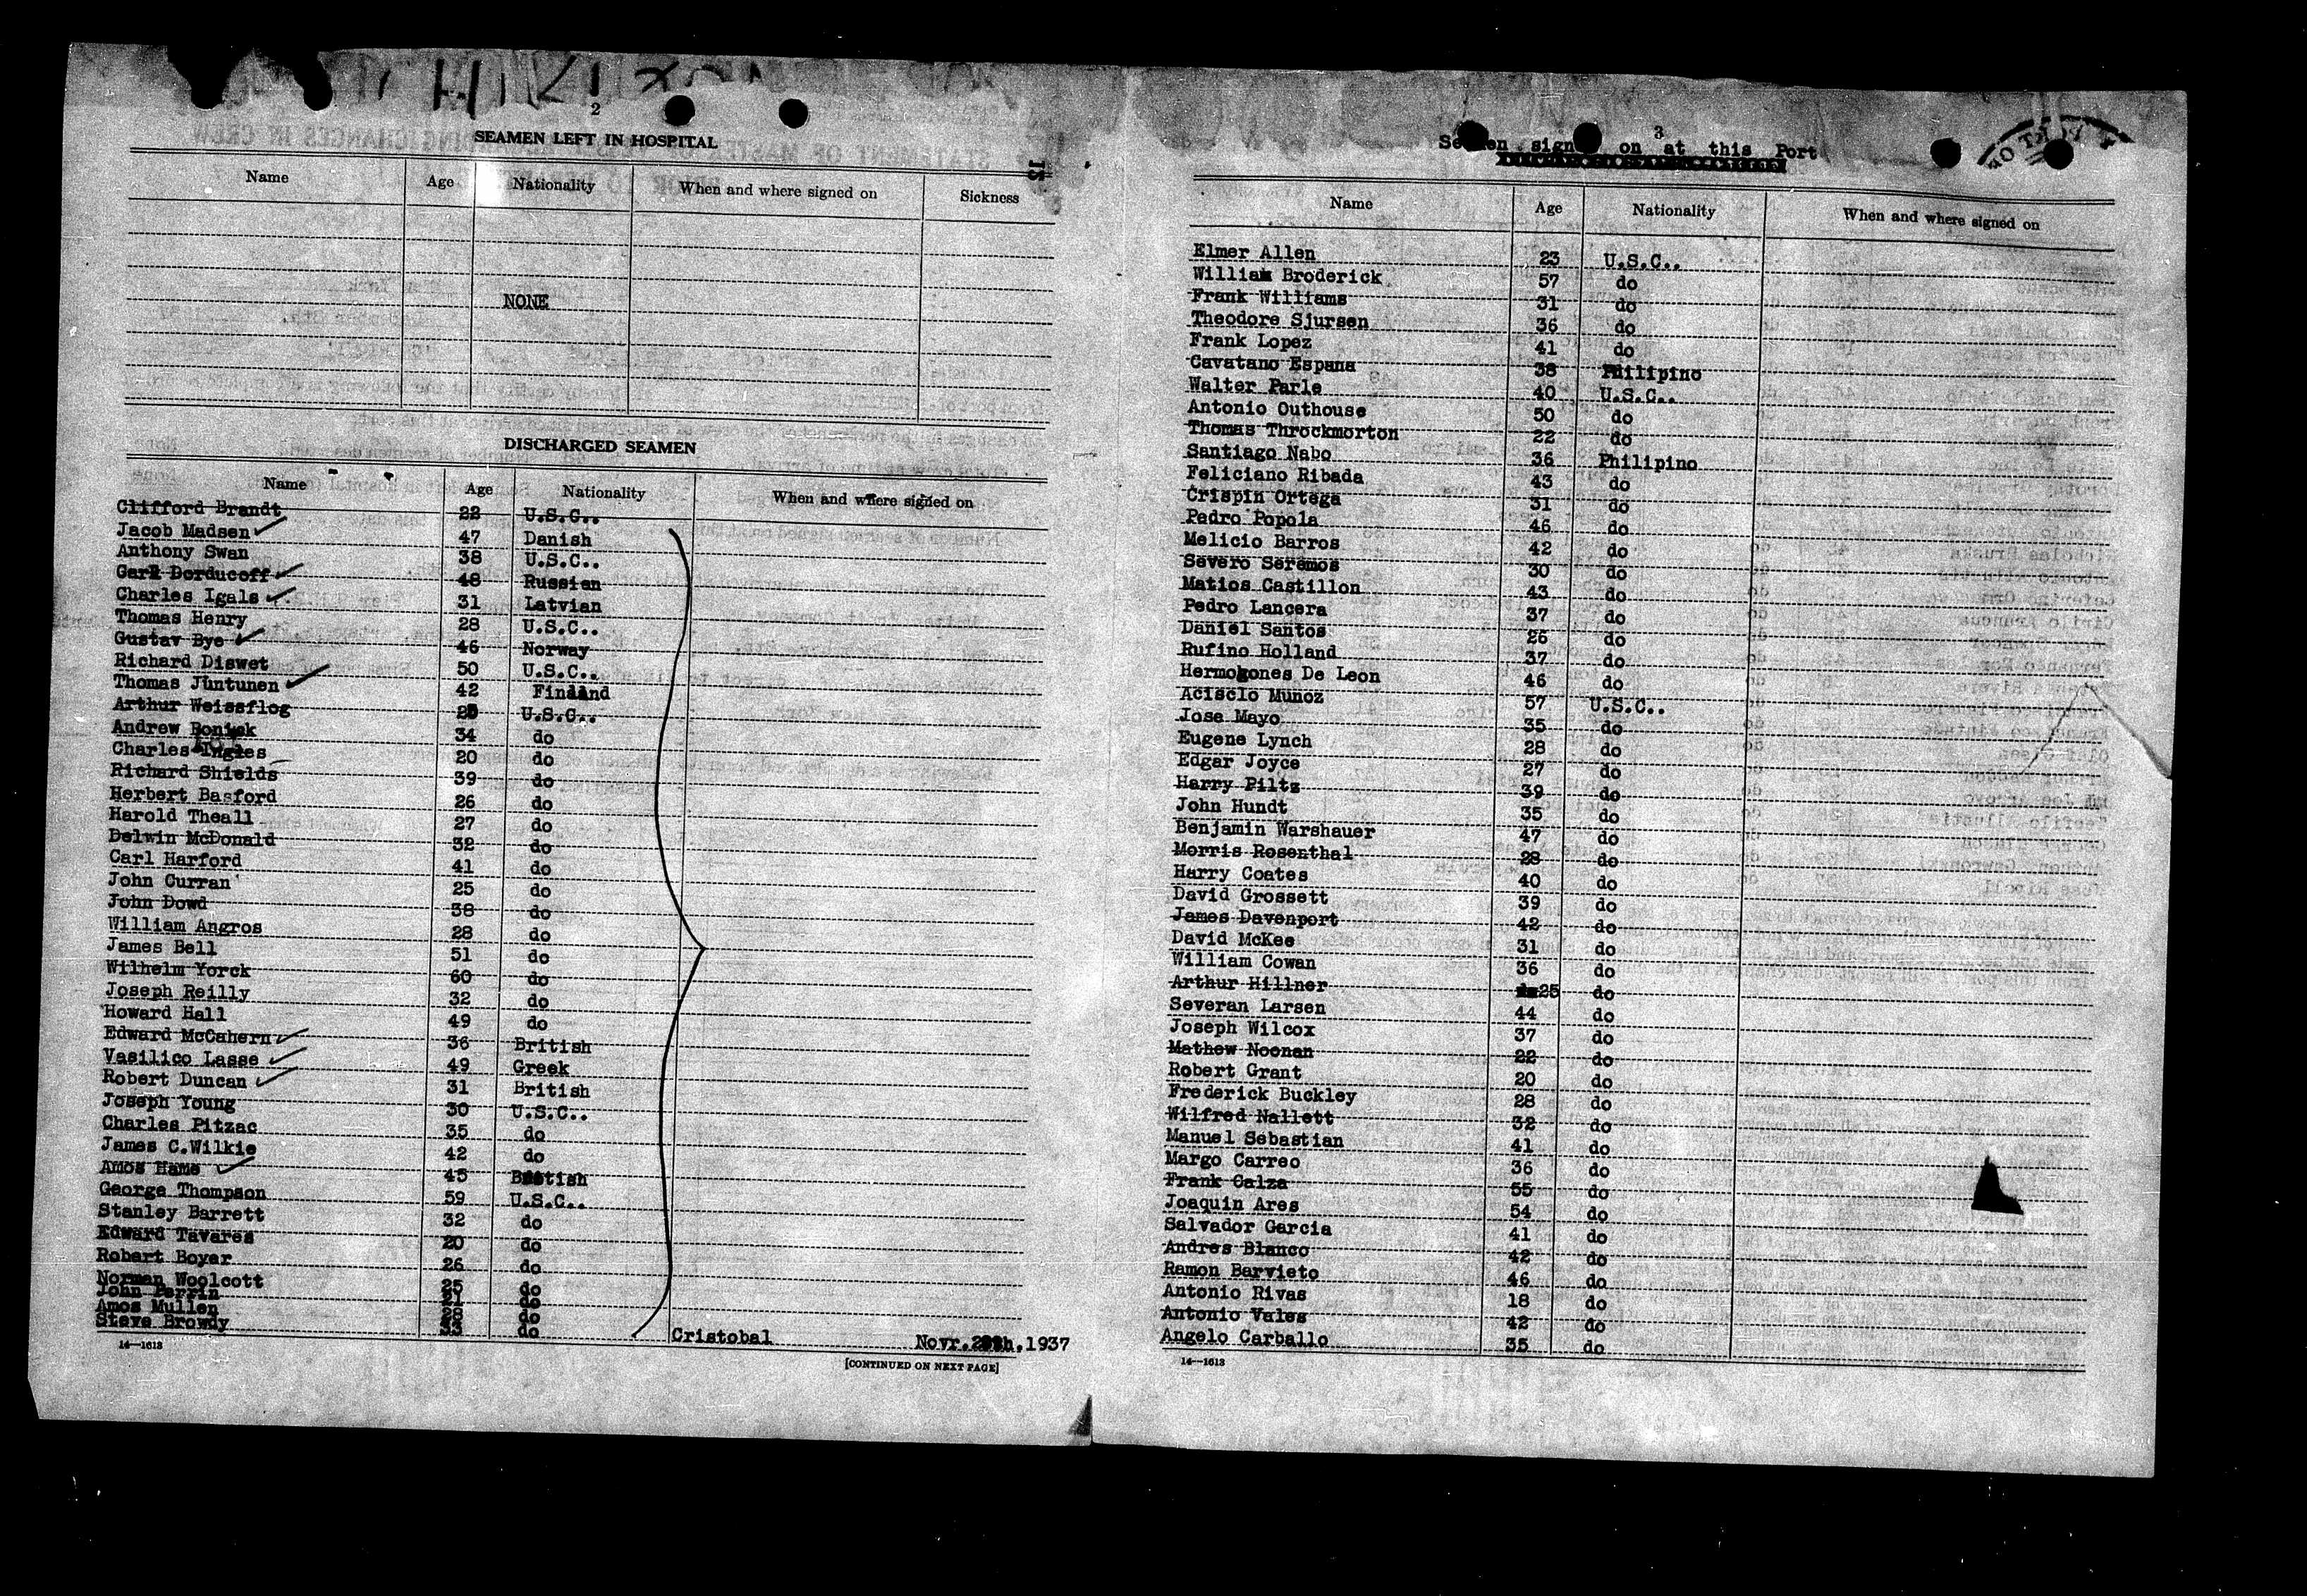 2
SEAMEN LEFT IN HOSPITAL
Name Age Nationality When and where signed on Sickness
NONE
DISCHARGED SEAMEN
Name Age Nationality When and where signed on
Clifford Brandt 22 U.S.C..
Jacob Madsen 47 Danish
Anthony Swan 38 U.S.C..
Dorducoff 48 Russian
Charles Igals 31 Latvian
Thomas Henry 28 U.S.C..
Gustav Bye 46 Norway
Richard Diswet 50 U.S.C..
Thomas Juntunen 42 Finland
Arthur Weissflog U.S.C..
Andrew 34 do
Charles Ingles 20 do
Richard Shields 39 do
Herbert Basford 26 do
Harold Theall 27 do
Delwin McDonald 32 do
Carl Harford 41 do
John Curran 25 do
John Dowd 38 do
William Angros 28 do
James Bell 51 do
Wilhelm Yorck 60 do
Joseph Reilly 32 do
Howard Hall 49 do
Edward McCahern 36 British
Vasilico Lasse 49 Greek
Robert Duncan 31 British
Joseph Young 30 U.S.C..
Charles Pitzac 35 do
James C.Wilkie 42 do
Amos Hame 45 British
George Thompson 59 U.S.C..
Stanley Barrett 32 do
Edward Tavares 20 do
Robert Boyer 26 do
Norman Woolcott 25 do
John Perrin 21 do
Amos Mullen 28 do
Steve Browdy 33 do
Cristobal Novr. 1937
14—1613
[CONTINUED ON NEXT PAGE]
3
Seamen signed on at this Port
Name Age Nationality When and where signed on
Elmer Allen 23 U.S.C..
William Broderick 57 do
Frank Williams 31 do
Theodore Sjursen 36 do
Frank Lopez 41 do
Cavatano Espana 38 Philipino
Walter Parle 40 U.S.C..
Antonio Outhouse 50 do
Thomas Throckmorton 22 do
Santiago Nabo 36 Philipino
Feliciano Ribada 43 do
Crispin Ortega 31 do
Pedro Popola 46 do
Melicio Barros 42 do
Severo Seremos 30 do
Matios Castillon 43 do
Pedro Lancera 37 do
Daniel Santos 26 do
Rufino Holland 37 do
Hermogones De Leon 46 do
Acisclo Munoz 57 U.S.C..
Jose Mayo 35 do
Eugene Lynch 28 do
Edgar Joyce 27 do
Harry Piltz 39 do
John Hundt 35 do
Benjamin Warshauer 47 do
Morris Rosenthal 28 do
Harry Coates 40 do
David Grossett 39 do
James Davenport 42 do
David McKee 31 do
William Cowan 36 do
Arthur Hillner 25 do
Severan Larsen 44 do
Joseph Wilcox 37 do
Mathew Noonan 22 do
Robert Grant 20 do
Frederick Buckley 28 do
Wilfred Nallett 32 do
Manuel Sebastian 41 do
Margo Carreo 36 do
Frank Calza 55 do
Joaquin Ares 54 do
Salvador Garcia 41 do
Andres Blanco 42 do
Ramon Barvieto 46 do
Antonio Rivas 18 do
Antonio Vales 42 do
Angelo Carballo 35 do
14—1613